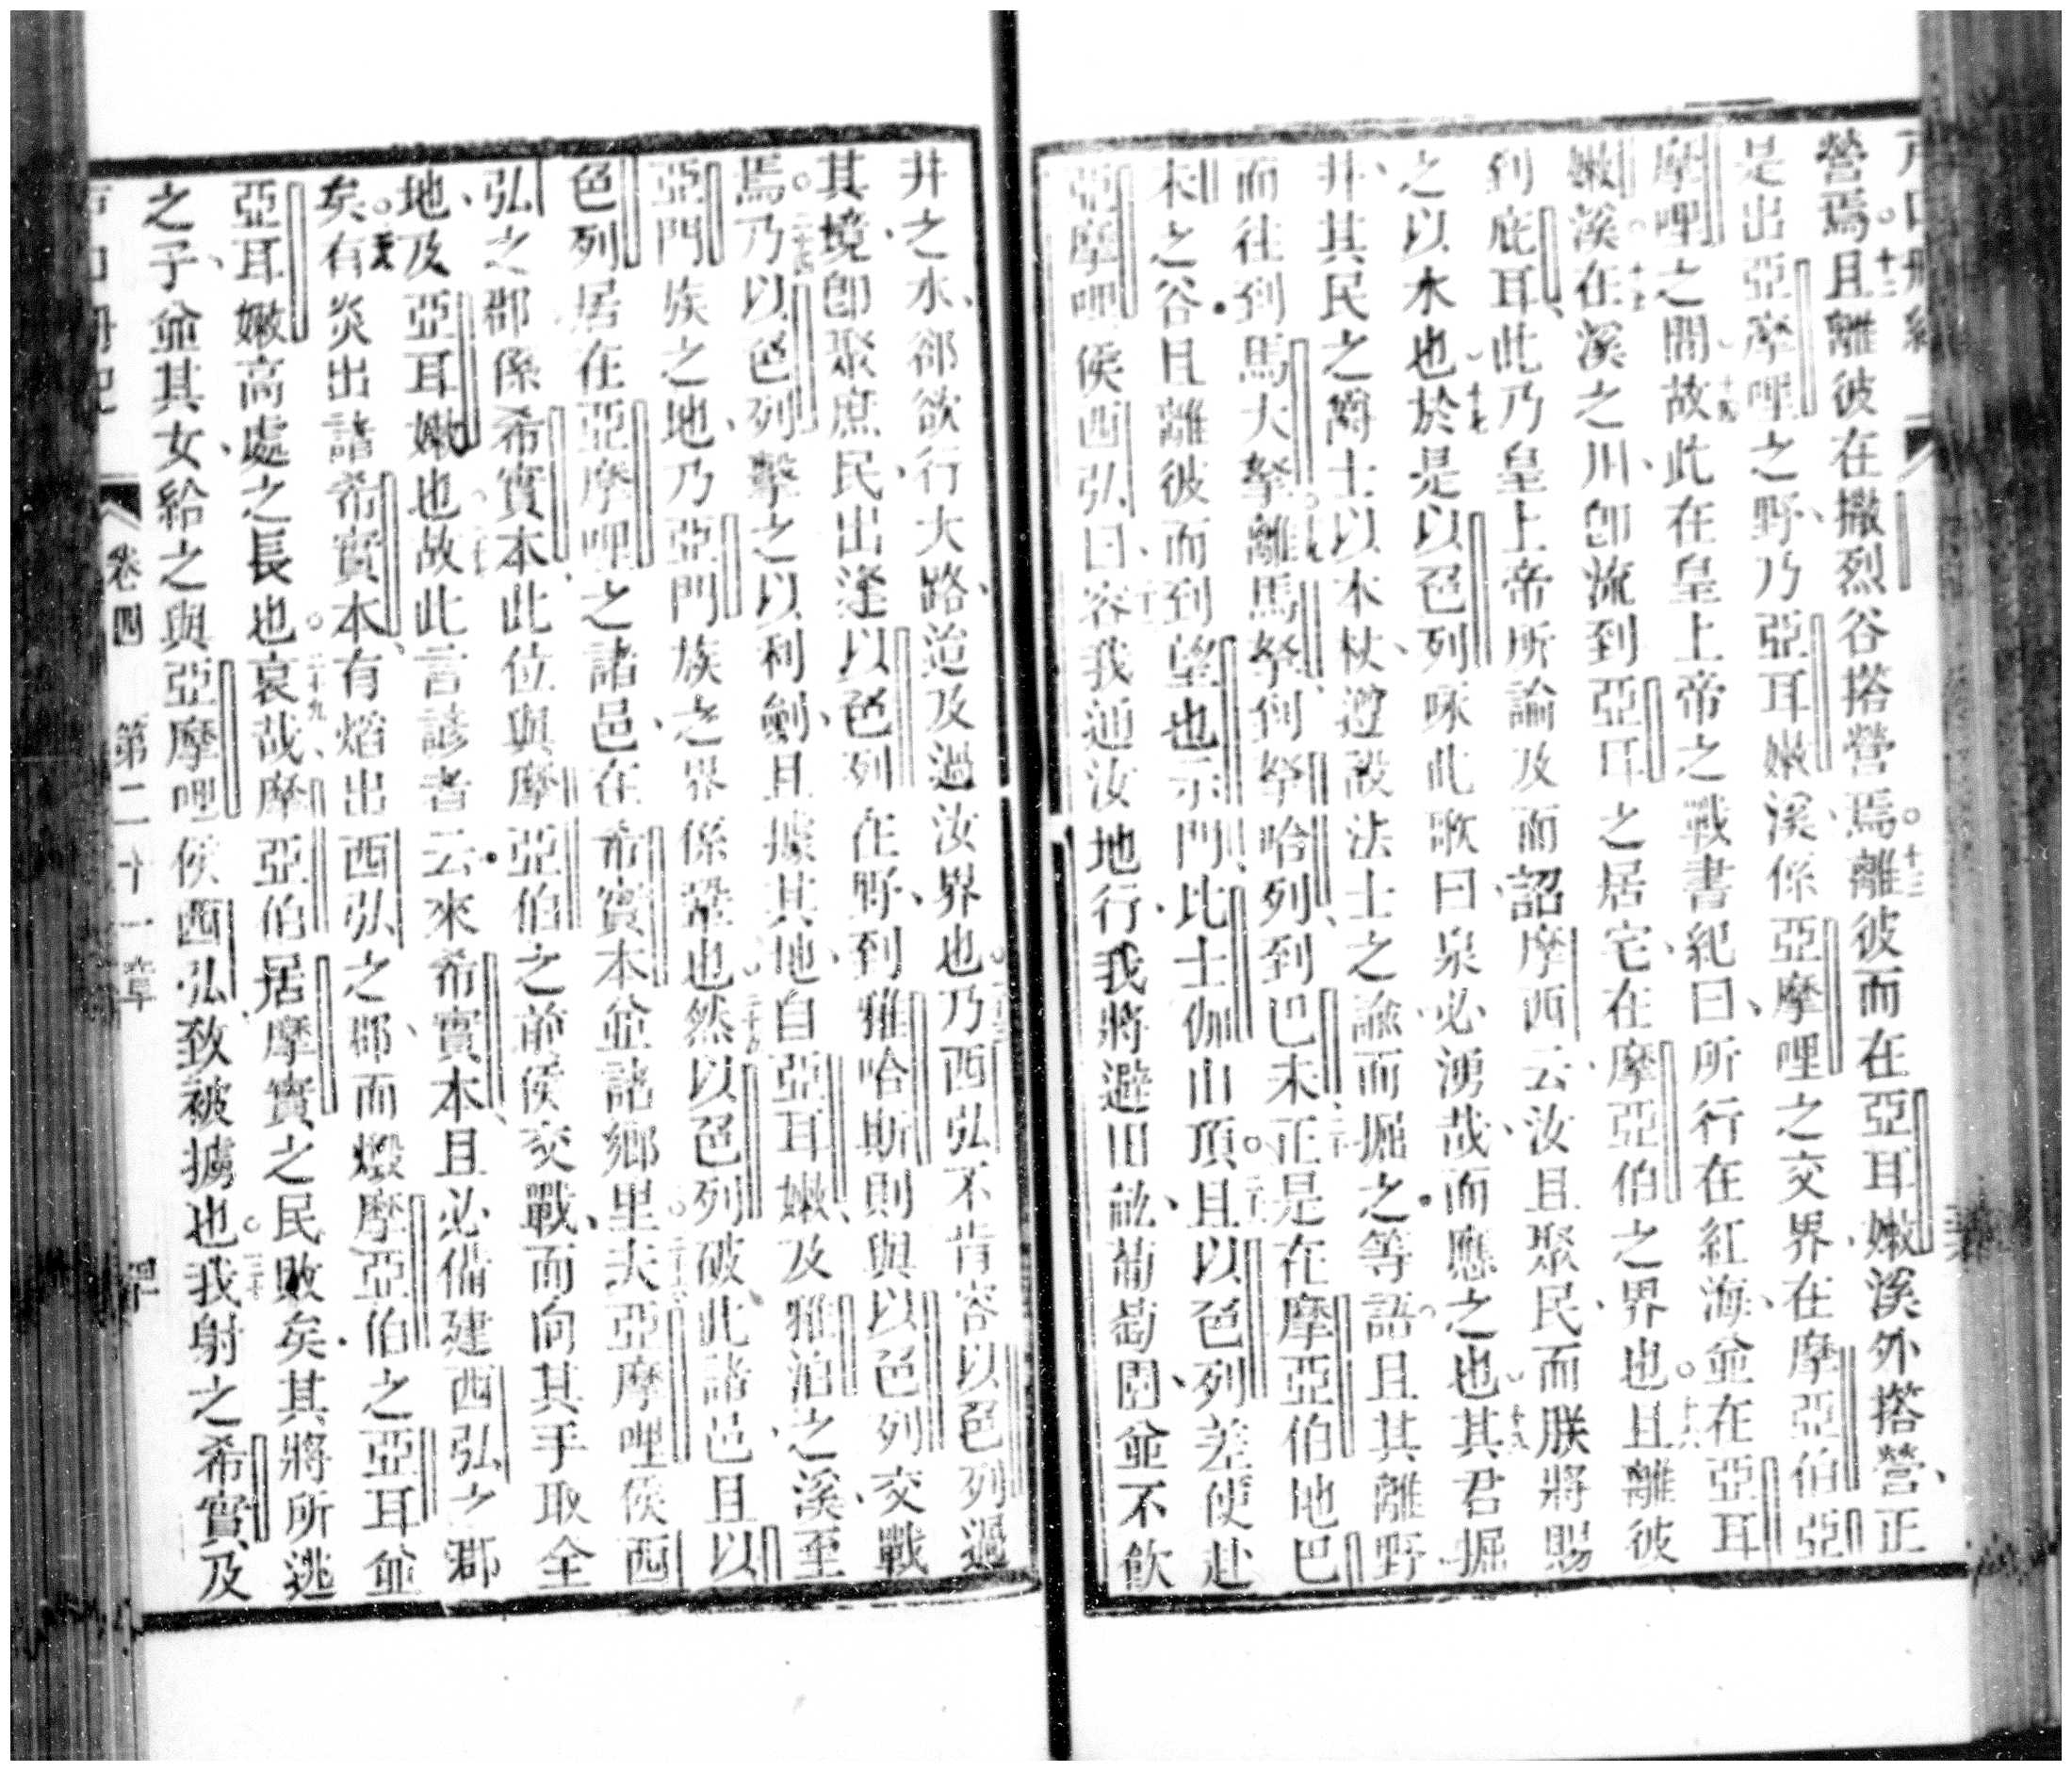 營焉。十二且離彼在撒烈谷搭營焉。十三離彼而在亞耳嫩溪外搭營、正
是出亞摩哩之野、乃亞耳嫩溪、係亞摩哩之交界、在摩亞伯亞
摩哩之間。十四故此在皇上帝之戰書紀曰、所行在紅海、並在亞耳
嫩溪。十五在溪之川、卽流到亞耳之居宅、在摩亞伯之界也。十六且離彼
到庇耳、此乃皇上帝所論及而詔摩西云、汝且聚民、而朕將賜
之以水也。十七於是以色列咏此歌曰、泉必湧哉、而應之也。十八其君掘
井、其民之爵士以木杖、遵設法士之諭而掘之等語。且其離野
而往到馬大拏。十九離馬拏、到拏哈列、到巴末。二十正是在摩亞伯地巴
末之谷。且離彼而到望也示門、比士伽山頂。二十一且以色列差使赴
亞摩哩侯西弘曰、二十二容我通汝地行、我將避田畝葡萄園、並不飲
井之水、郤欲行大路、迨及過汝界也。二十三乃西弘不肯容以色列過
其境、卽聚庶民、出逢以色列在野、到雅哈斯、則與以色列交戰
焉。二十四乃以色列擊之以利劍、且據其地、自亞耳嫩、及雅泊之溪、至
亞門族之地、乃亞門族之界係鞏也。二十五然以色列破此諸邑、且以
色列居在亞摩哩之諸邑、在希實本並諸鄉里。二十六夫亞摩哩侯西
弘之郡係希實本、此位與摩亞伯之前侯交戰、而向其手取全
地、及亞耳嫩也。二十七故此言諺者云、來希實本、且必備建西弘之郡
矣。二十八有炎出諸希實本、有熖出西弘之郡、而燬摩亞伯之亞耳並
亞耳嫩高處之長也。二十九哀哉摩亞伯、居摩實之民敗矣、其將所逃
之子、並其女、給之與亞摩哩侯西弘、致被擄也。三十我射之、希實及
卷四 第二十一章